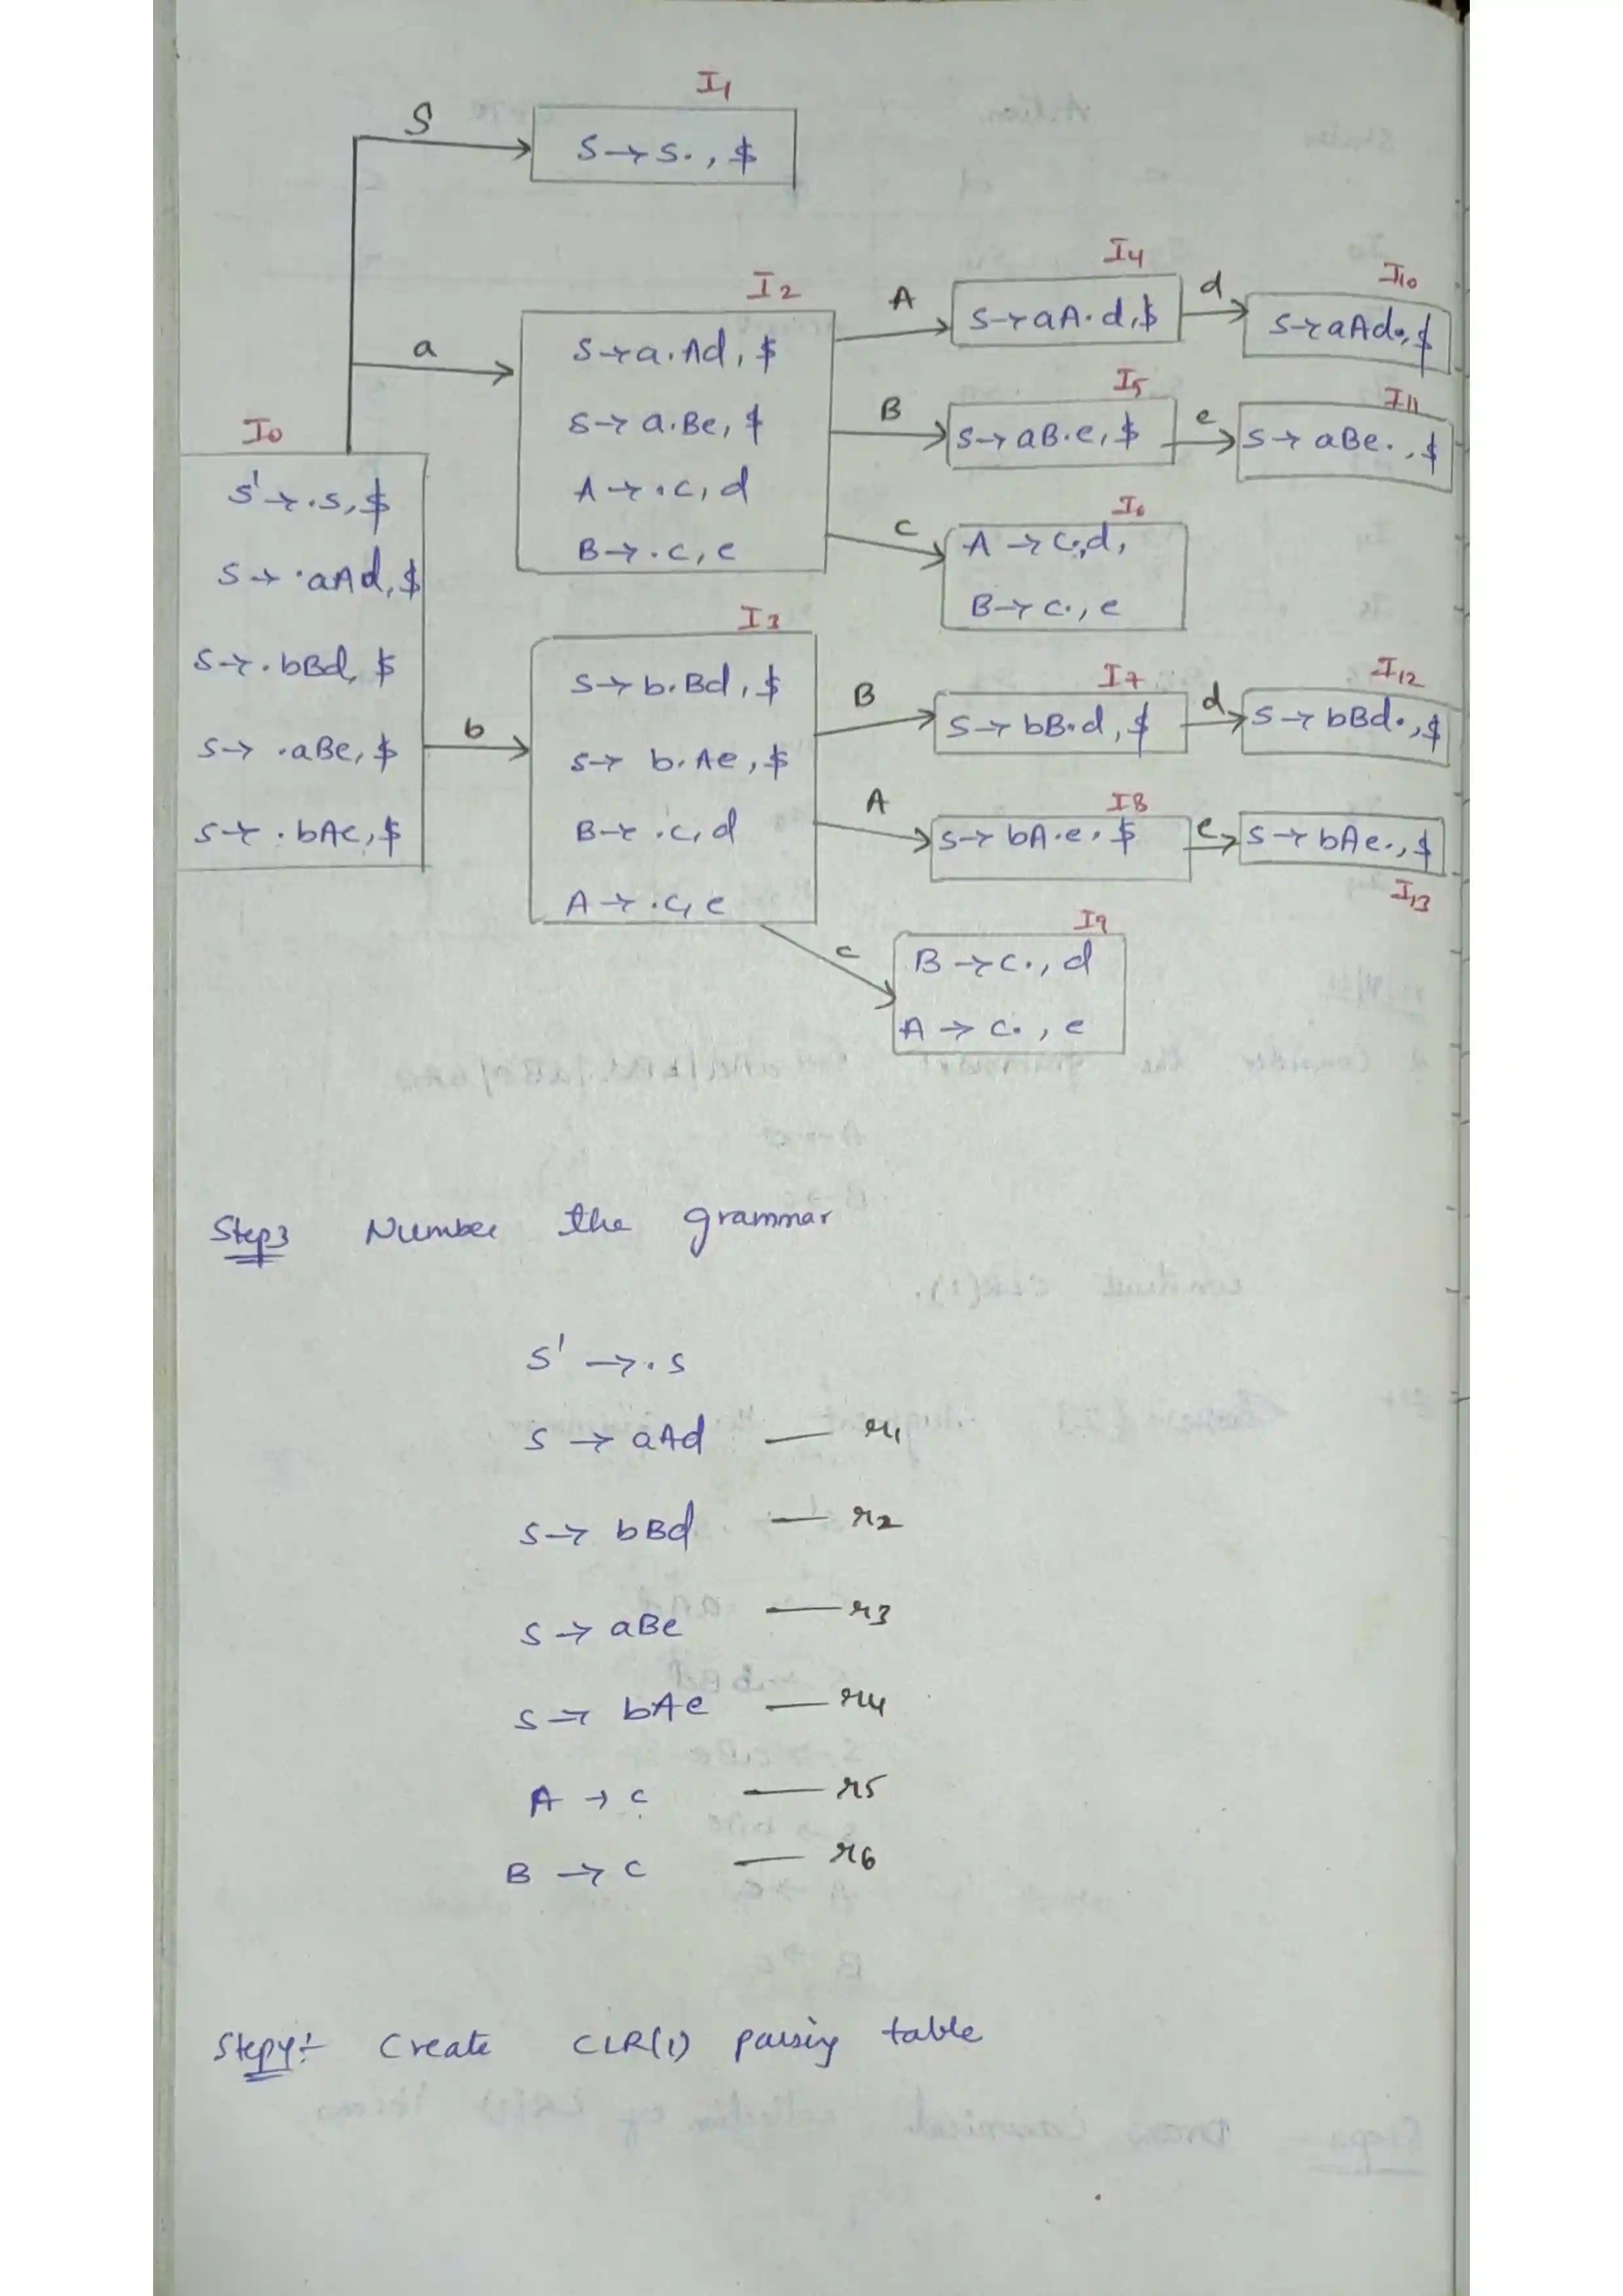 I1
S
S → S., $
I2
a
S → a.Ad, $
S → a.Be, $
A → .c, d
B → .c, e
A
I4
S → aA.d, $
d
I10
S → aAd., $
B
I5
S → aB.e, $
e
I11
S → aBe., $
c
I6
A → c., d,
B → c., e
I0
S' → .S, $
S → .aAd, $
S → .bBd, $
S → .aBe, $
S → .bAe, $
b
I3
S → b.Bd, $
S → b.Ae, $
B → .c, d
A → .c, e
B
I7
S → bB.d, $
d
I12
S → bBd., $
A
I8
S → bA.e, $
e
S → bAe., $
I13
c
I9
B → c., d
A → c., e
Step3 Number the grammar
S' → .S
S → aAd — r1
S → bBd — r2
S → aBe — r3
S → bAe — r4
A → c — r5
B → c — r6
Step4:- Create CLR(1) parsing table